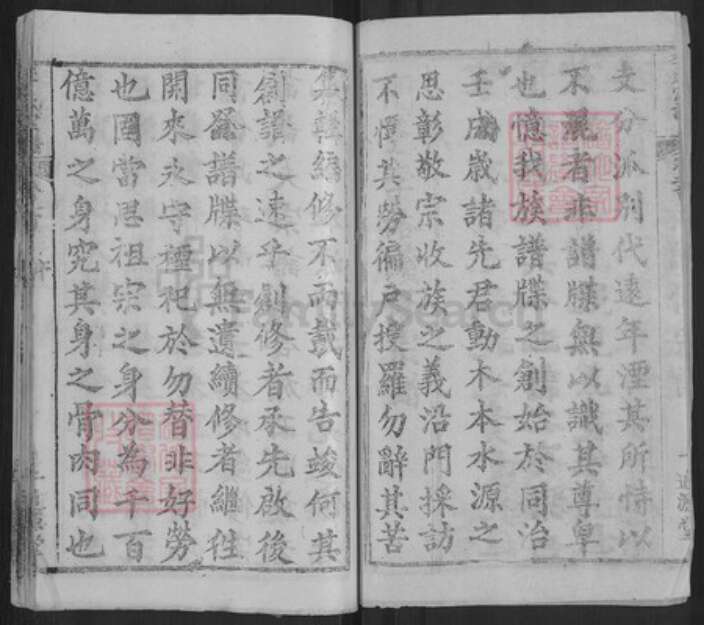 支分派別代遠年湮其所恃以
不混者非譜牒無以識其尊卑
也憶我族譜牒之創始於同治
壬戌歲諸先君動木本水源之
思彰敬宗收族之義沿門採訪
不憚其勞徧戶搜羅勿辭其苦
集韓經修不兩載而告竣何其
創譜之速乎創修者承先啟後
同登譜牒以無遺續修者繼往
開來永守禋祀於勿替非好勞
也固當思祖宗之身分為千百
億萬之身究其身之骨肉同也
FamilySearch